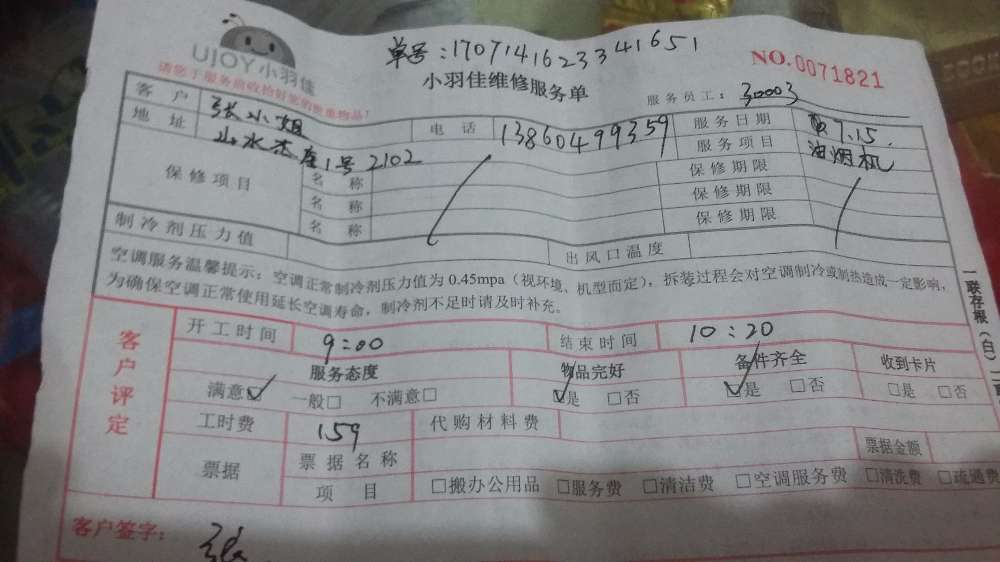 UJOY小羽佳
单号:1707141623341651
NO.0071821
小羽佳维修服务单
请您于服务前收拾好您的贵重物品!
服务员工:
客户 张小姐 电话 13860499359 服务日期 7.15.
地址 山水杰座1号2102 服务项目 油烟机
保修项目 名称 保修期限
名称 保修期限
名称 保修期限
制冷剂压力值 出风口温度
空调服务温馨提示:空调正常制冷剂压力值为0.45mpa(视环境、机型而定),拆装过程会对空调制冷或制热造成一定影响,
为确保空调正常使用延长空调寿命,制冷剂不足时请及时补充。
一联存根(白)
客户评定
开工时间 9:00 结束时间 10:20
服务态度 物品完好 备件齐全 收到卡片
满意☑ 一般□ 不满意□ ☑是 □否 ☑是 □否 □是 □否
工时费 159 代购材料费
票据 票据名称 票据金额
项目 □搬办公用品 □服务费 □清洁费 □空调服务费 □清洗费 □疏通费
客户签字: 张